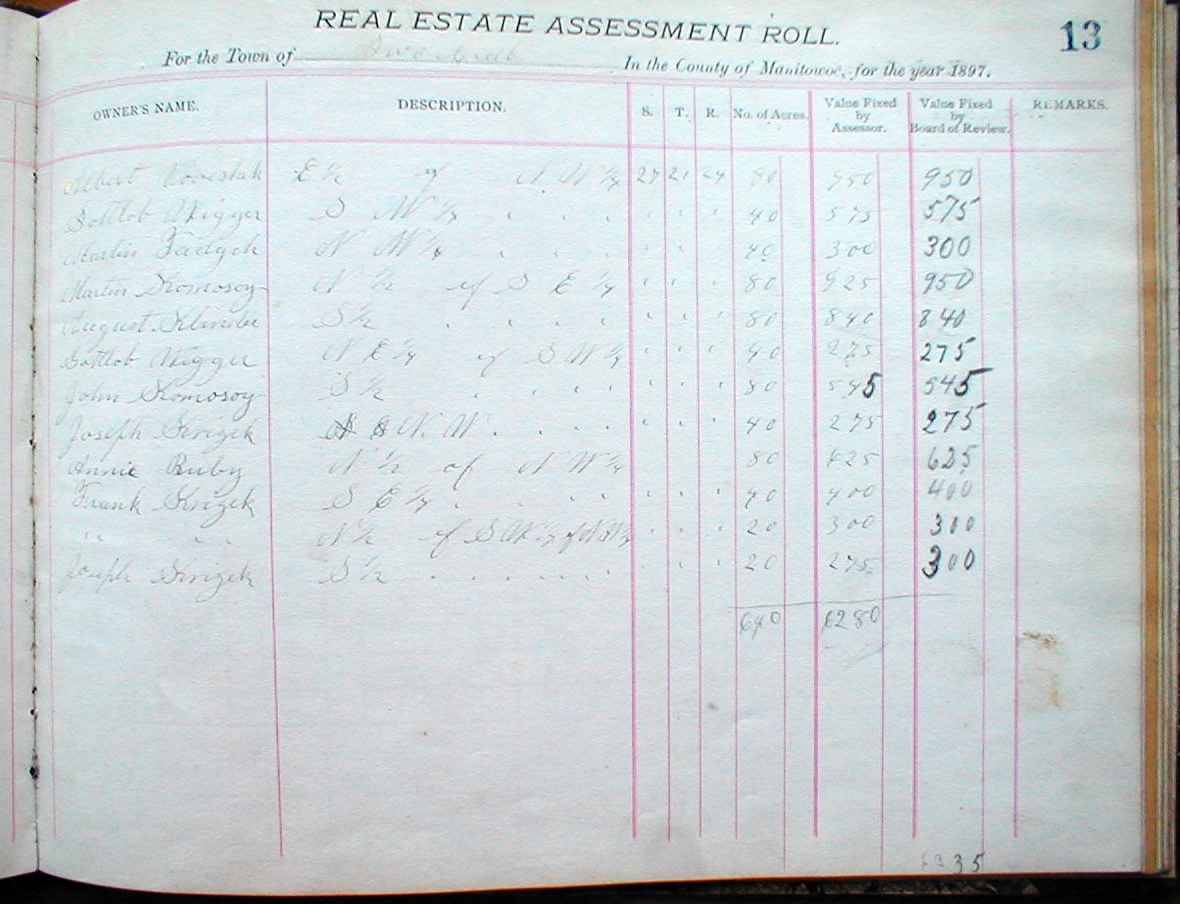 REAL ESTATE ASSESSMENT ROLL. 13
For the Town of Two Creeks In the County of Manitowoc, for the year 1897.
OWNER'S NAME. DESCRIPTION. S. T. R. No. of Acres. Value Fixed by Assessor. Value Fixed by Board of Review. REMARKS.
Albert E ½ of N.W ¼ 27 21 24 80 950 950
Gottlob S W ¼ 40 575 575
Martin N W ¼ 40 300 300
Martin N ½ of S E ¼ 80 925 950
August S ½ 80 840 840
Gottlob N E ¼ of S W ¼ 40 275 275
John S ½ 80 545 545
Joseph N. W. 40 275 275
Annie Ruby N ½ of N W ¼ 80 625 625
Frank Krizek S E ¼ 40 400 400
" " N ½ of S W ¼ of N W ¼ 20 300 300
Joseph S ½ 20 275 300
640 6280
35